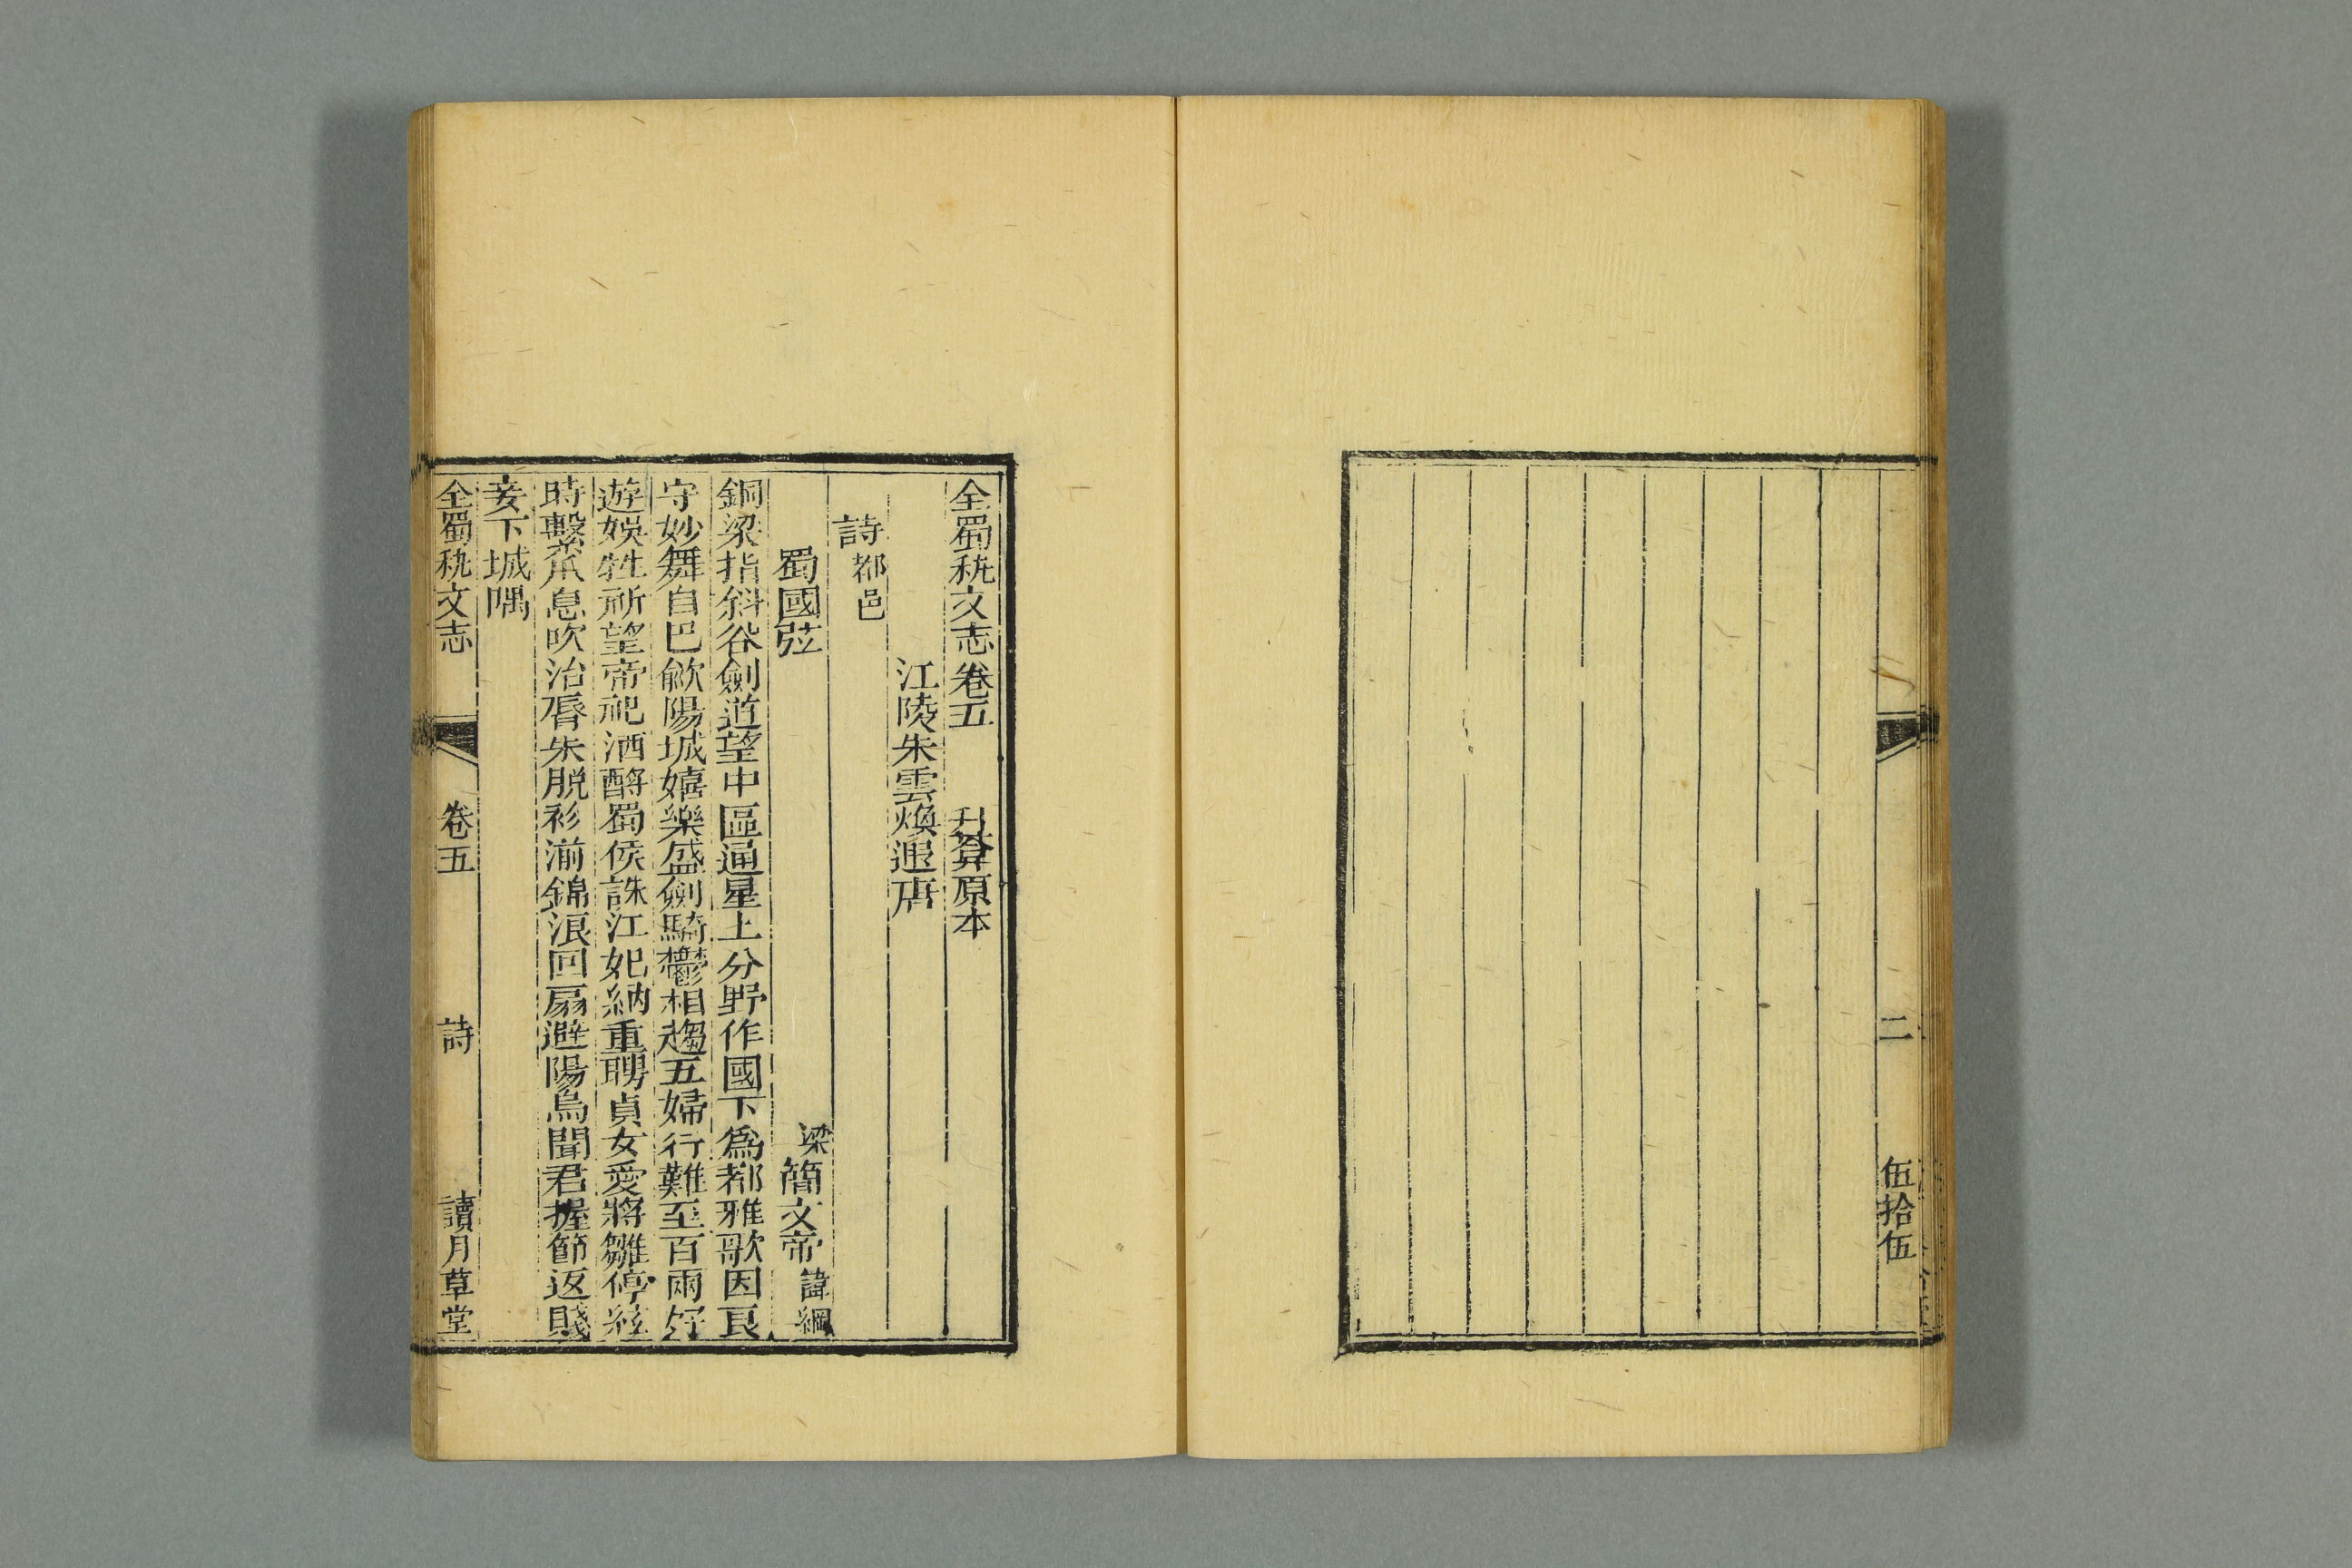 二 伍拾伍
全蜀秇文志卷五 升菴原本
江陵朱雲煥遐唐
詩都邑
蜀國弦 梁簡文帝諱綱
銅梁指斜谷劍道望中區通星上分野作國下爲都雅歌因良
守妙舞自巴歈陽城嬉樂盛劍騎鬱相趨五婦行難至百兩好
遊娛牲祈望帝祀酒酹蜀侯誅江妃納重聘貞女愛將雛停絃
時繫爪息吹治脣朱脱衫湔錦浪回扇避陽烏聞君握節返賤
妾下城隅
全蜀秇文志 卷五 詩 讀月草堂